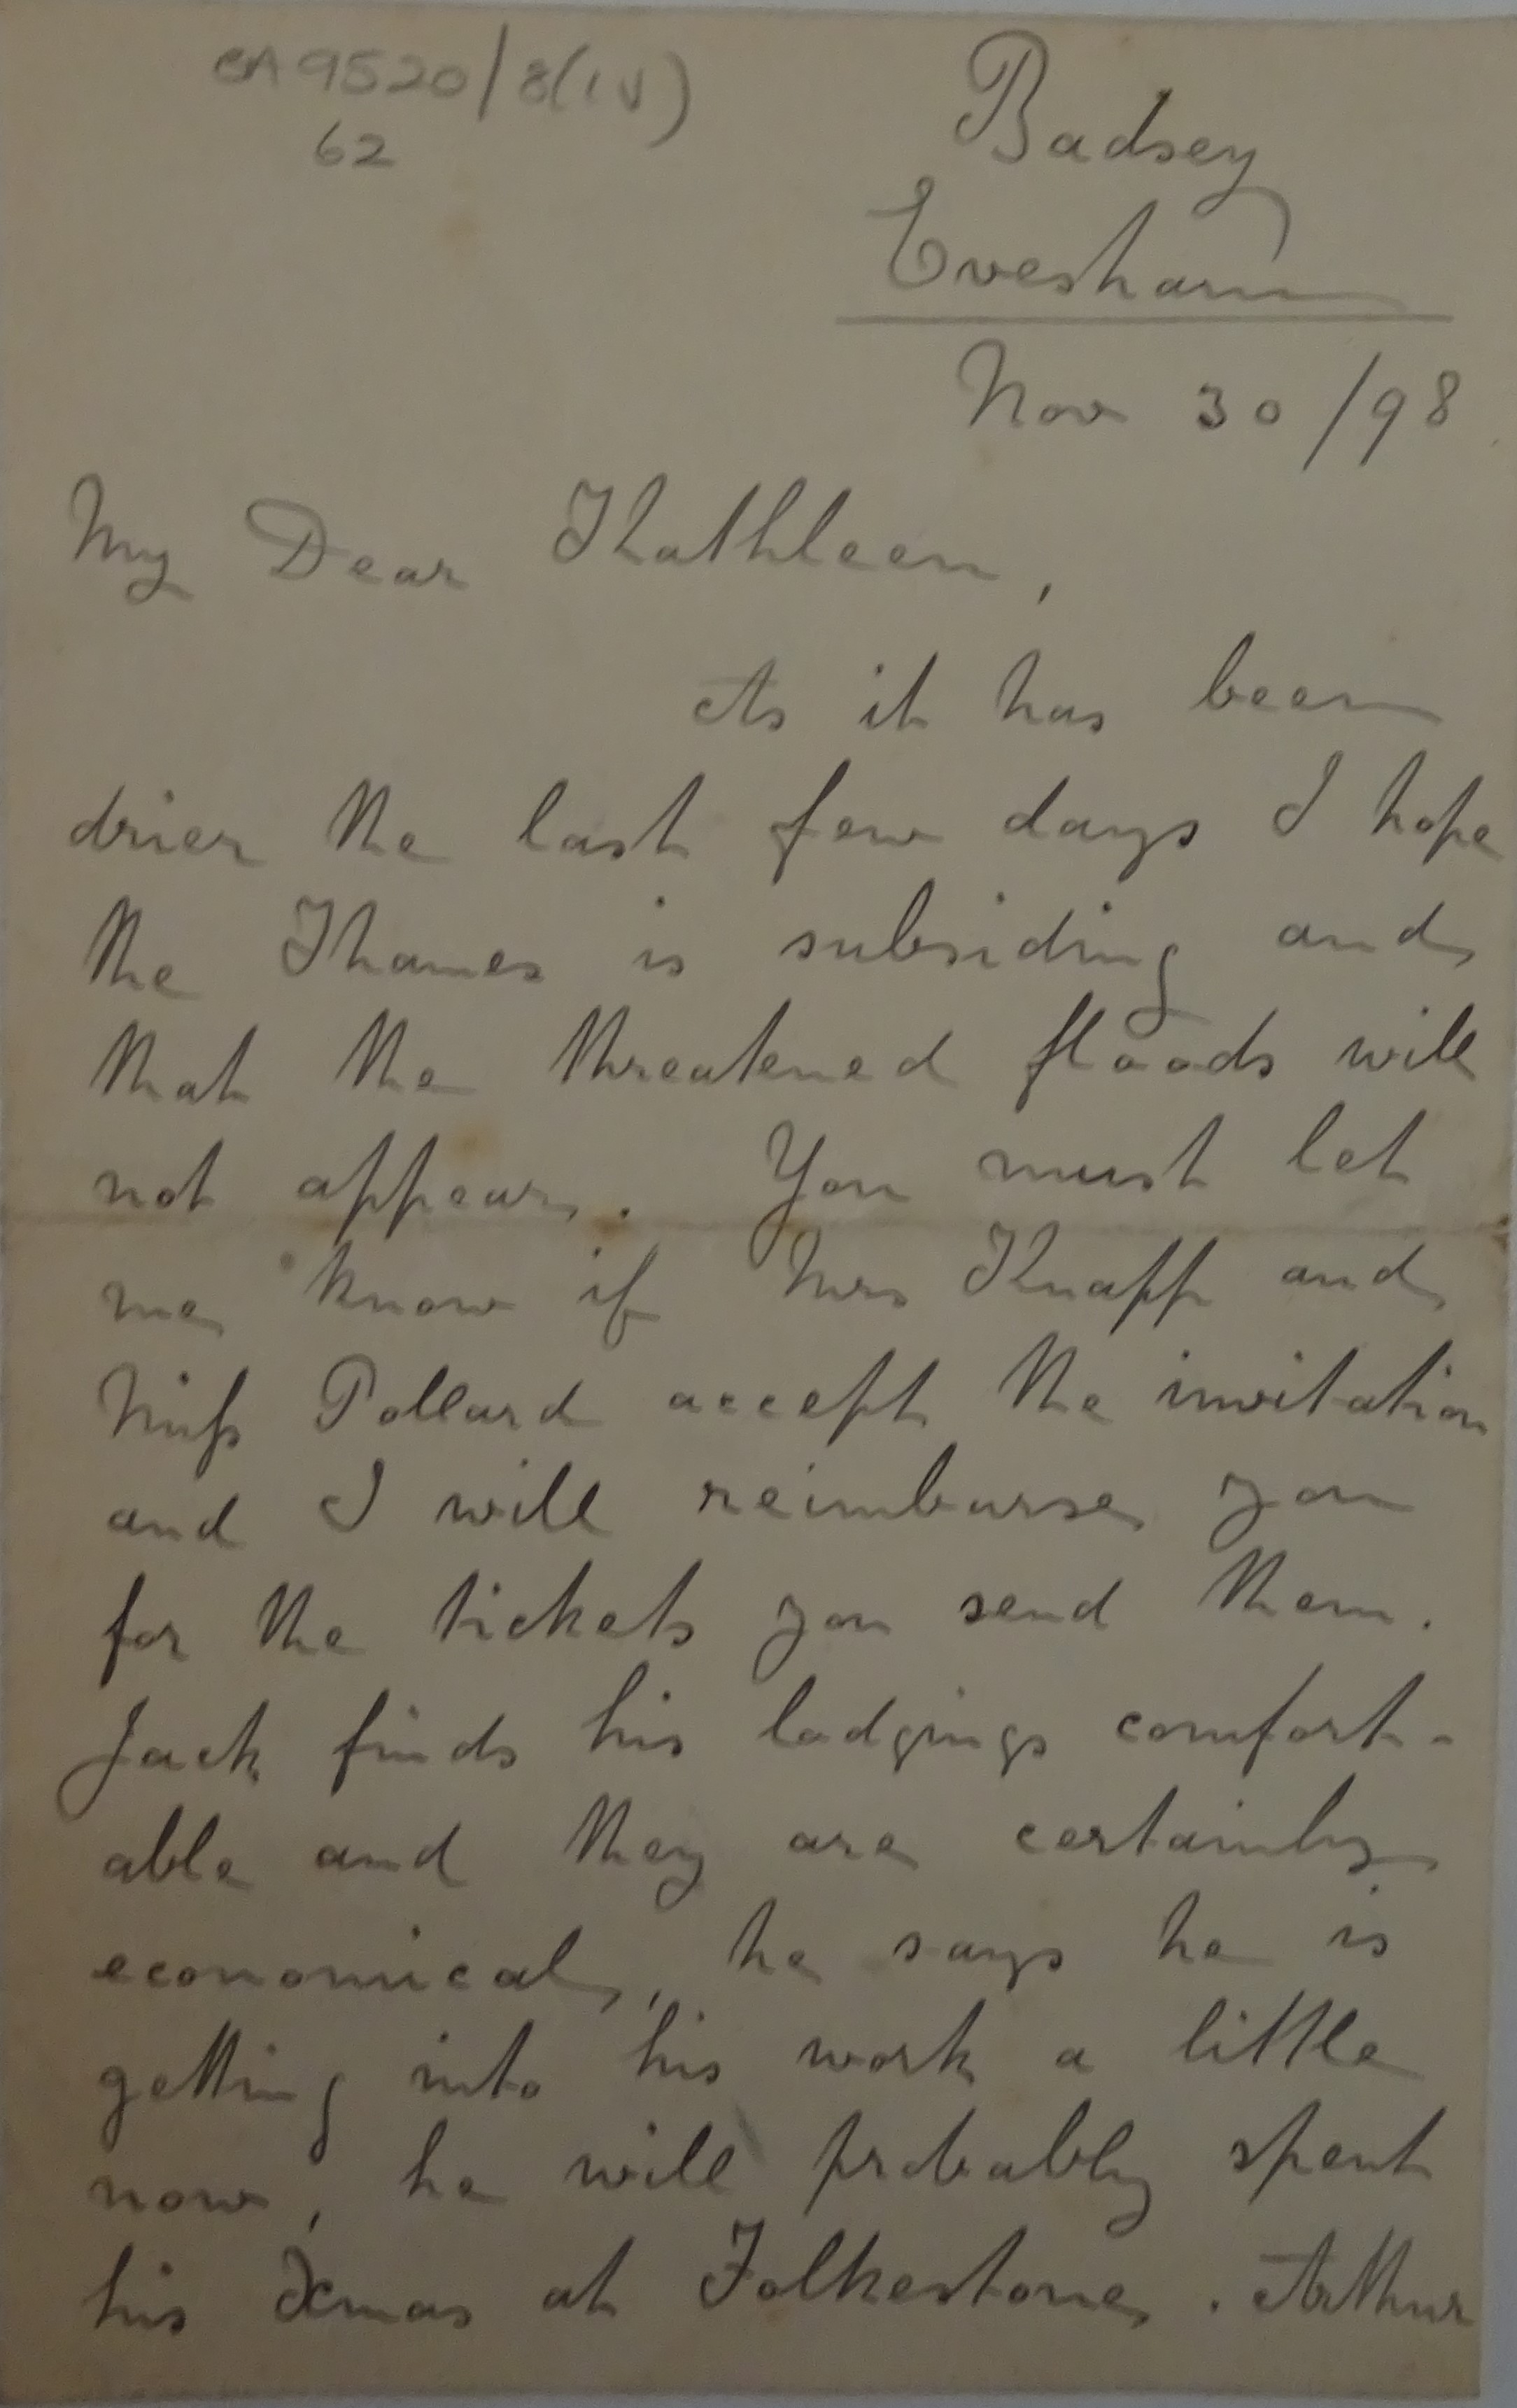 BA9520/8(iv)
62
Badsey
Evesham
Nov 30/98
My Dear Kathleen,
As it has been
drier the last few days I hope
the Thames is subsiding and
that the threatened floods will
not appear. You must let
me know if Mrs Knapp and
Miss Pollard accept the invitation
and I will reimburse you
for the tickets you send them.
Jack finds his lodgings comfort-
able and they are certainly
economical, he says he is
getting into his work a little
now, he will probably spent
his Xmas at Folkestone. Arthur